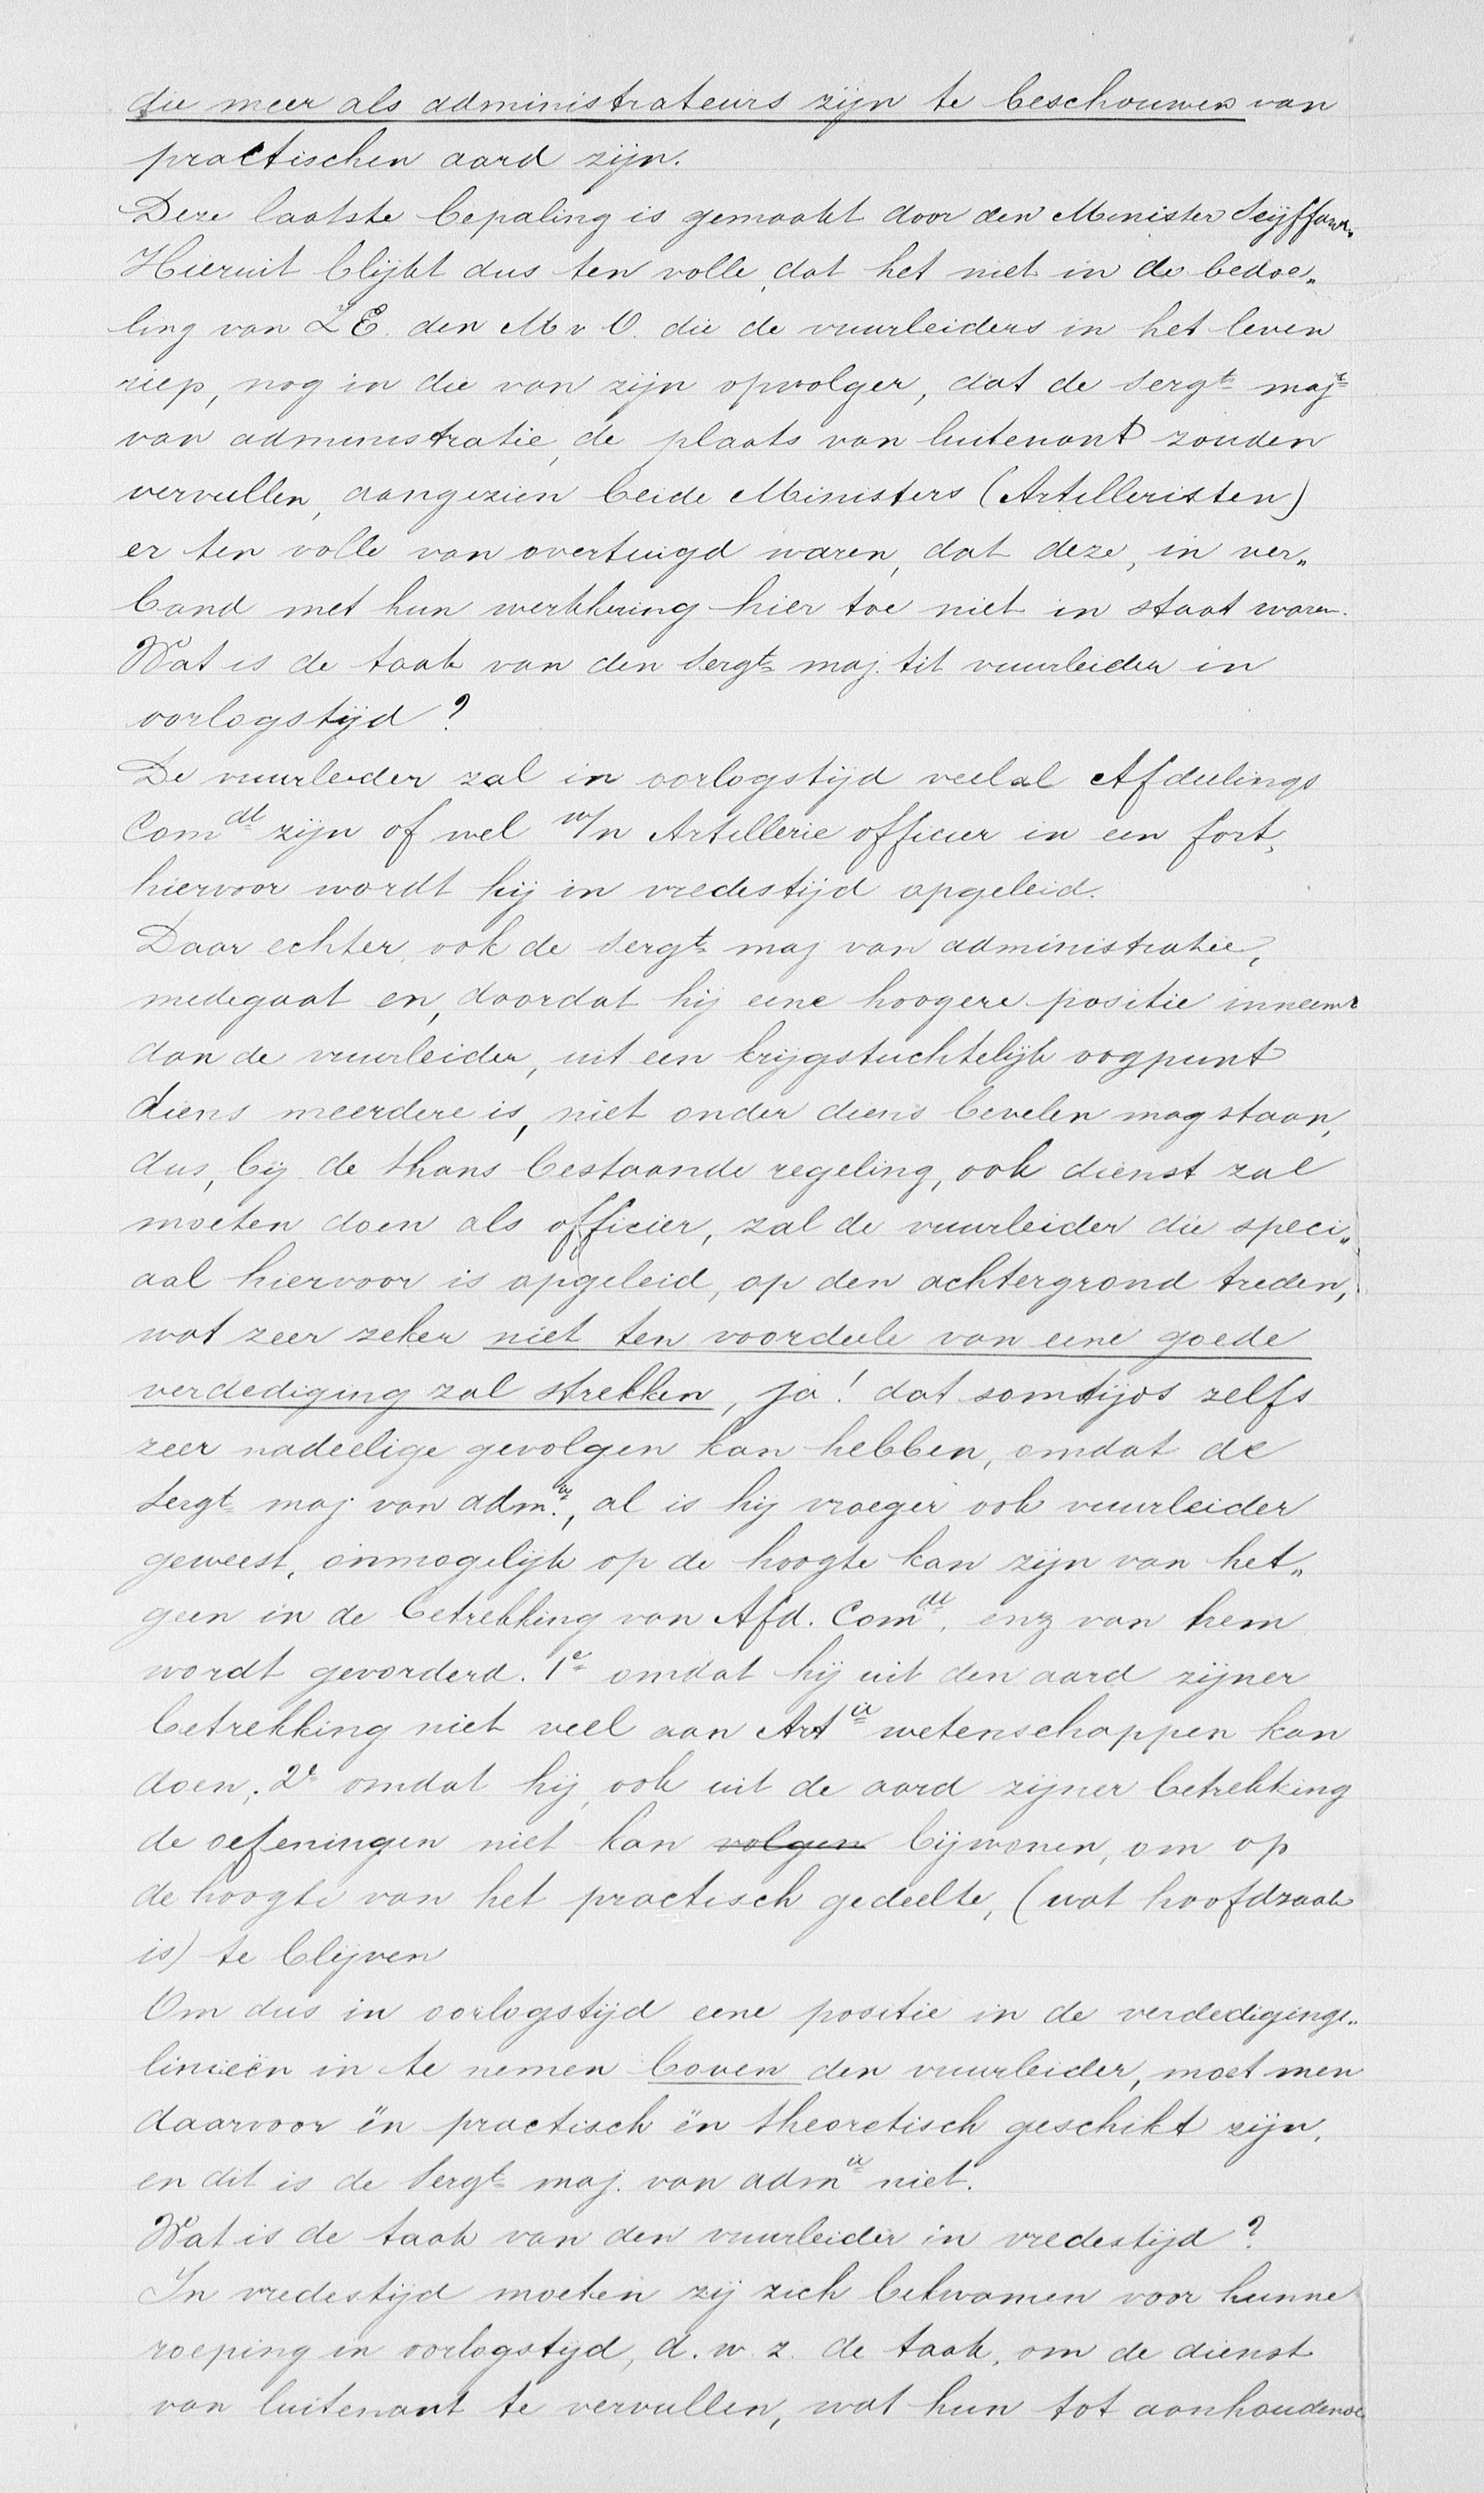 die meer als administrateurs zijn te beschouwen van
practischen aard zijn.
Deze laatste bepaling is gemaakt door den Minister Seyffardt.
Hieruit blijkt dus ten volle, dat het niet in de bedoe„
ling van Z E. den M v O. die de vuurleiders in het leven
riep, nog in die van zijn opvolger, dat de sergt maj
van administratie, de plaats van luitenant zouden
vervullen, aangezien beide Ministers (Artilleristen)
er ten volle van overtuigd waren, dat deze, in ver„
band met hun werkkring hier toe niet in staat waren.
Wat is de taak van den sergt maj. tit vuurleider in
oorlogstijd?
De vuurleider zal in oorlogstijd veelal Afdeelings
Comdt zijn of wel w/n Artillerie officier in een fort,
hiervoor wordt hij in vredestijd opgeleid.
Daar echter, ook de sergt maj van administratie,
medegaat en, doordat hij eene hoogere positie inneemt
dan de vuurleider, uit een krijgstuchtelijk oogpunt
diens meerdere is, niet onder diens bevelen mag staan,
dus, bij de thans bestaande regeling, ook dienst zal
moeten doen als officier, zal de vuurleider die speci„
aal hiervoor is opgeleid, op den achtergrond treden,
wat zeer zeker niet ten voordeele van eene goede
verdediging zal strekken, ja! dat somtijds zelfs
zeer nadeelige gevolgen kan hebben, omdat de
sergt maj van admie., al is hij vroeger ook vuurleider
geweest, onmogelijk op de hoogte kan zijn van het„
geen in de betrekking van Afd. Comdt. enz van hem
wordt gevorderd. 1e omdat hij uit den aard zijner
betrekking niet veel aan Artie wetenschappen kan
doen; 2e omdat hij, ook uit de aard zijner betrekking
de oefeningen niet kan volgen bijwonen, om op
de hoogte van het practisch gedeelte, (wat hoofdzaak
is) te blijven
Om dus in oorlogstijd eene positie in de verdedigings„
linieën in te nemen boven den vuurleider, moet men
daarvoor èn practisch èn theoretisch geschikt zijn,
en dit is de sergt maj. van admie niet.
Wat is de taak van den vuurleider in vredestijd?
In vredestijd moeten zij zich bekwamen voor hunne
roeping in oorlogstijd, d. w. z. de taak, om de dienst
van luitenant te vervullen, wat hun tot aanhoudende